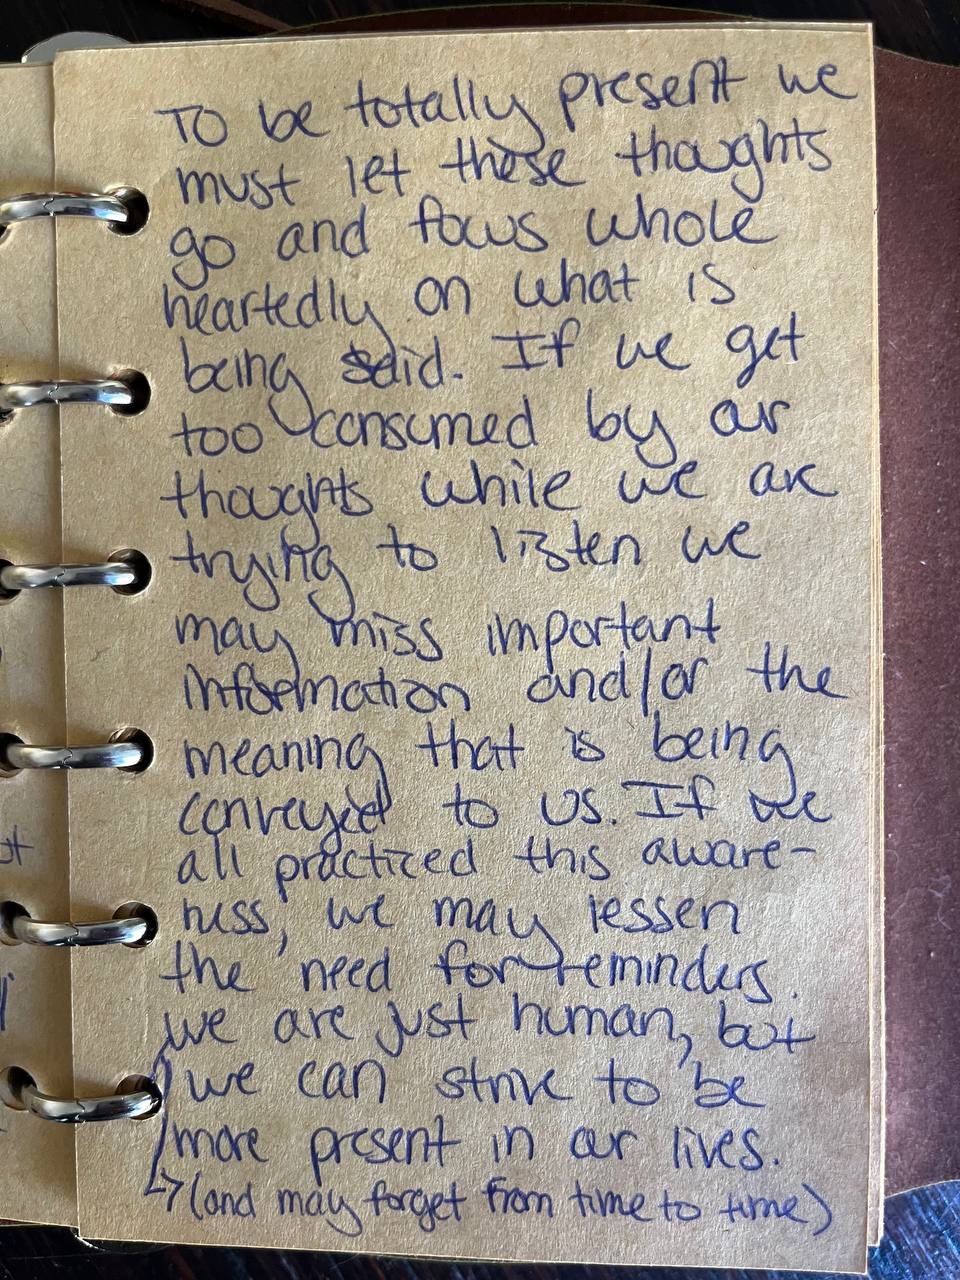 To be totally present we
must let these thoughts
go and focus whole
heartedly on what is
being said. If we get
too consumed by our
thoughts while we are
trying to listen we
may miss important
information and/or the
meaning that is being
conveyed to us. If we
all practized this aware-
ness, we may lessen
the need for reminders.
we are just human, but
we can strive to be
more present in our lives.
↳ (and may forget from time to time)